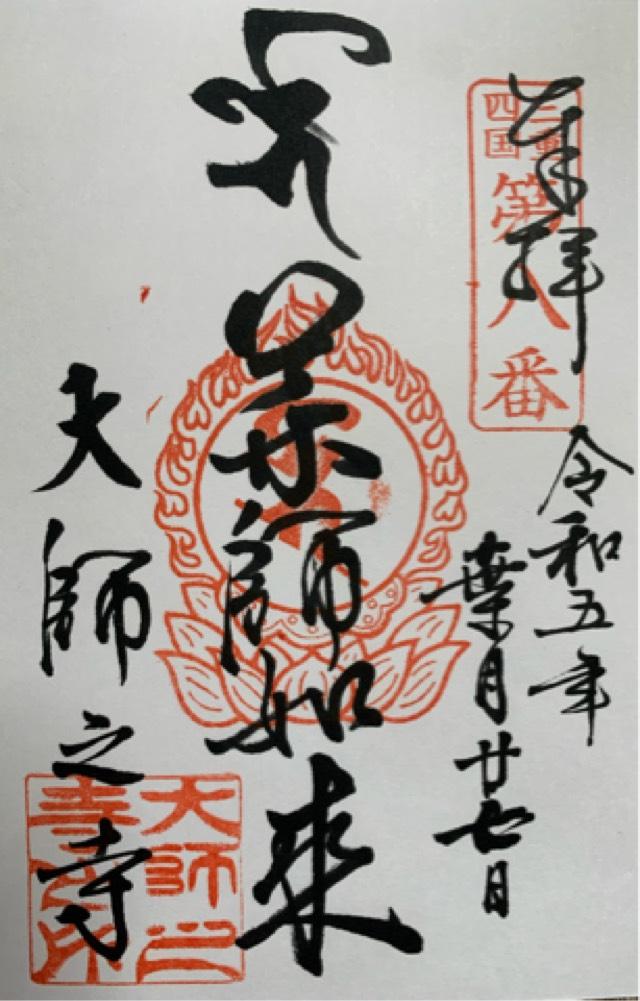 奉拝
三重
四国
第八番
令和五年
葉月廿七日
薬師如来
大師之寺
大師之
寺之印